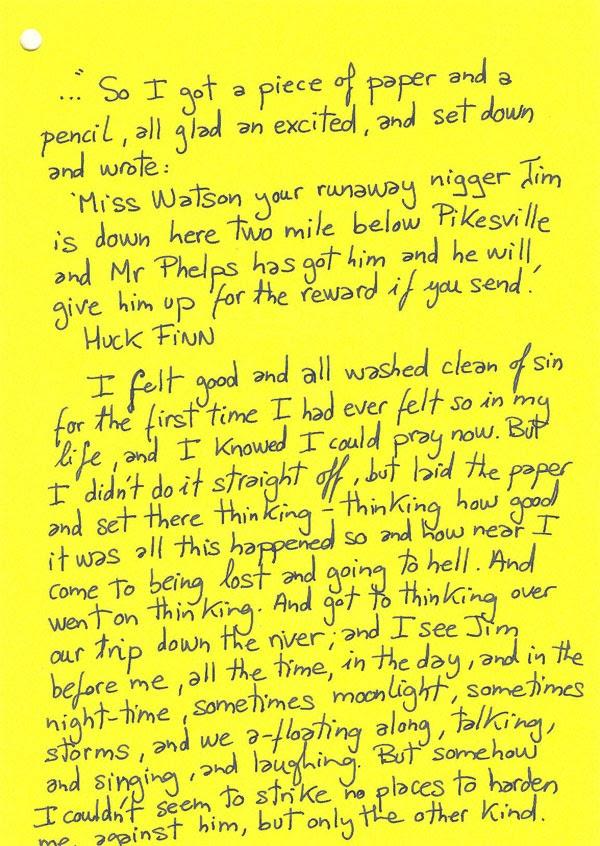 ..." So I got a piece of paper and a
pencil, all glad an excited, and set down
and wrote:
'Miss Watson your runaway nigger Jim
is down here two mile below Pikesville
and Mr Phelps has got him and he will
give him up for the reward if you send.'
HUCK FINN
I felt good and all washed clean of sin
for the first time I had ever felt so in my
life, and I knowed I could pray now. But
I didn't do it straight off, but laid the paper
and set there thinking - thinking how good
it was all this happened so and how near I
come to being lost and going to hell. And
went on thinking. And got to thinking over
our trip down the river; and I see Jim
before me, all the time, in the day, and in the
night-time, sometimes moonlight, sometimes
storms, and we a-floating along, talking,
and singing, and laughing. But somehow
I couldn't seem to strike no places to harden
me, against him, but only the other kind.